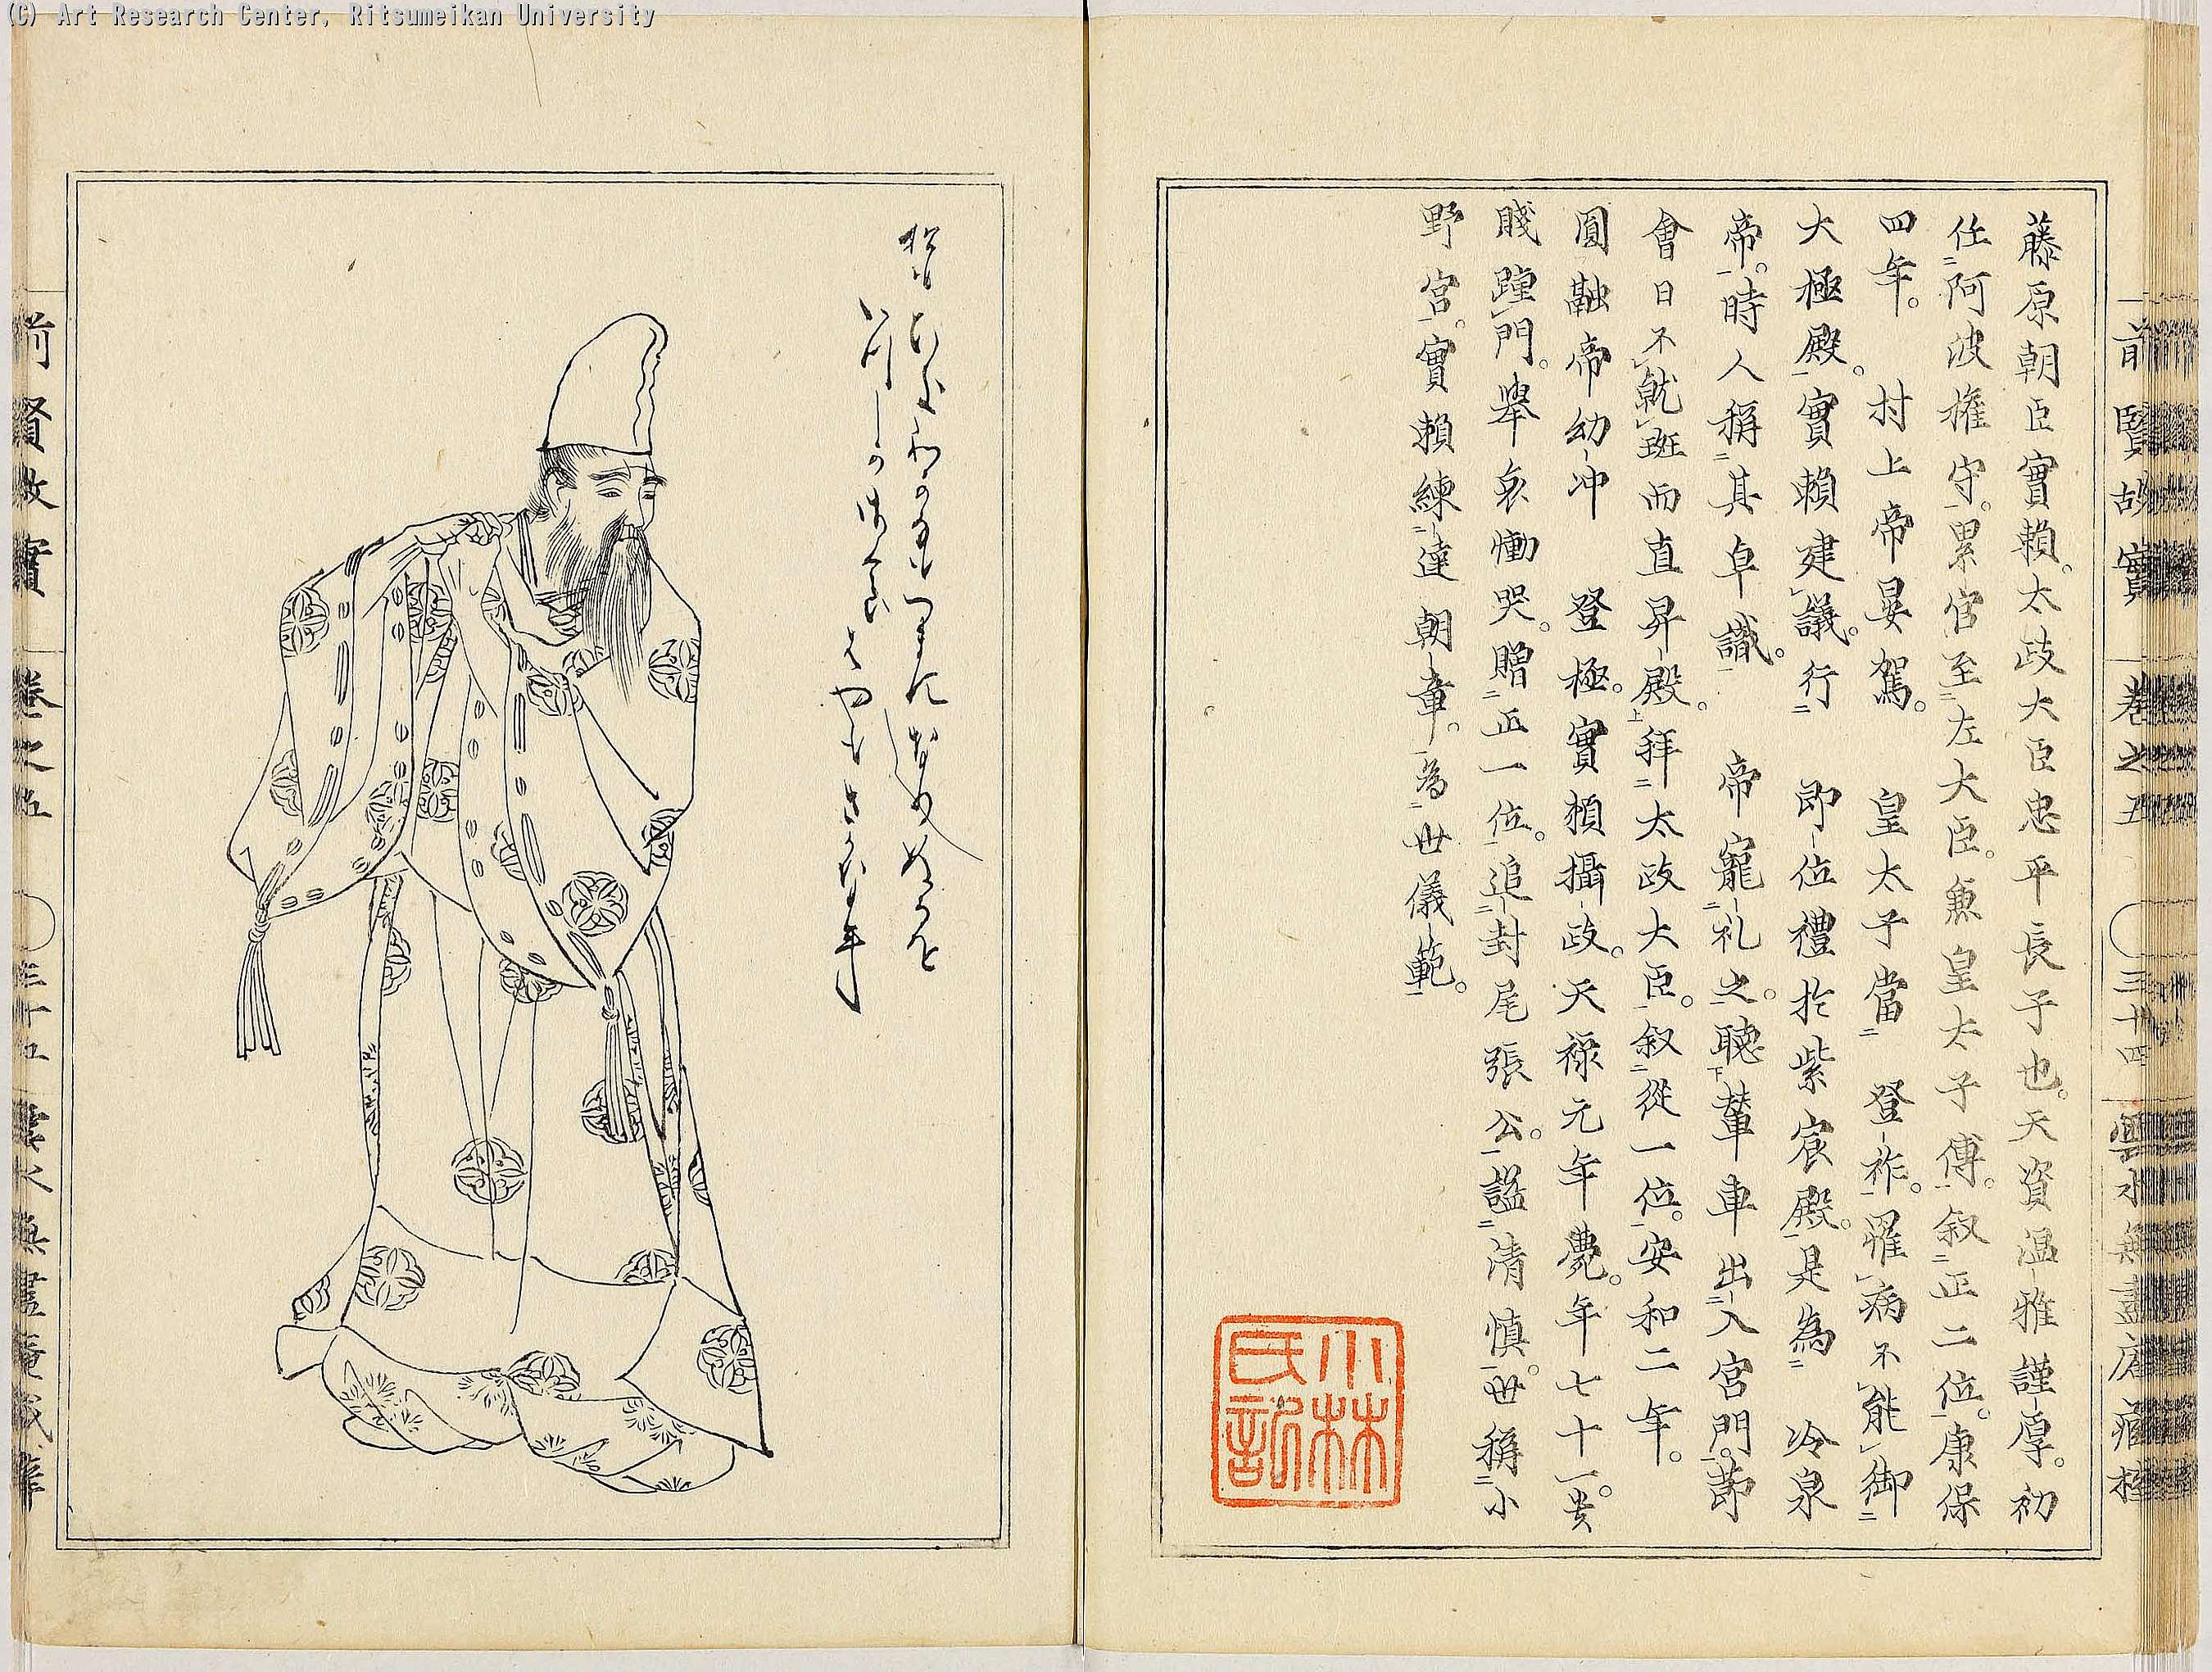 (C) Art Research Center, Ritsumeikan University
前賢故實 卷之五 三十四 雲水無盡庵藏梓
藤原朝臣實頼。太政大臣忠平長子也。天資温雅謹厚。初
任阿波權守。累官至左大臣。兼皇太子傅。叙正二位。康保
四年。村上帝晏駕。皇太子當登祚。罹病不能御
大極殿。實頼建議。行即位禮於紫宸殿。是為冷泉
帝。時人稱其卓識。帝寵礼之。聽輦車出入宮門。節
會日不就班而直昇殿。拜太政大臣。叙從一位。安和二年。
圓融帝幼冲登極。實頼攝政。天祿元年薨。年七十一。貴
賤踵門。擧哀慟哭。贈正一位。追封尾張公。謚清慎。世稱小
野宮。實頼練達朝章。為世儀範。
小林氏記
前賢故實 卷之五 三十五 雲水無盡庵藏梓